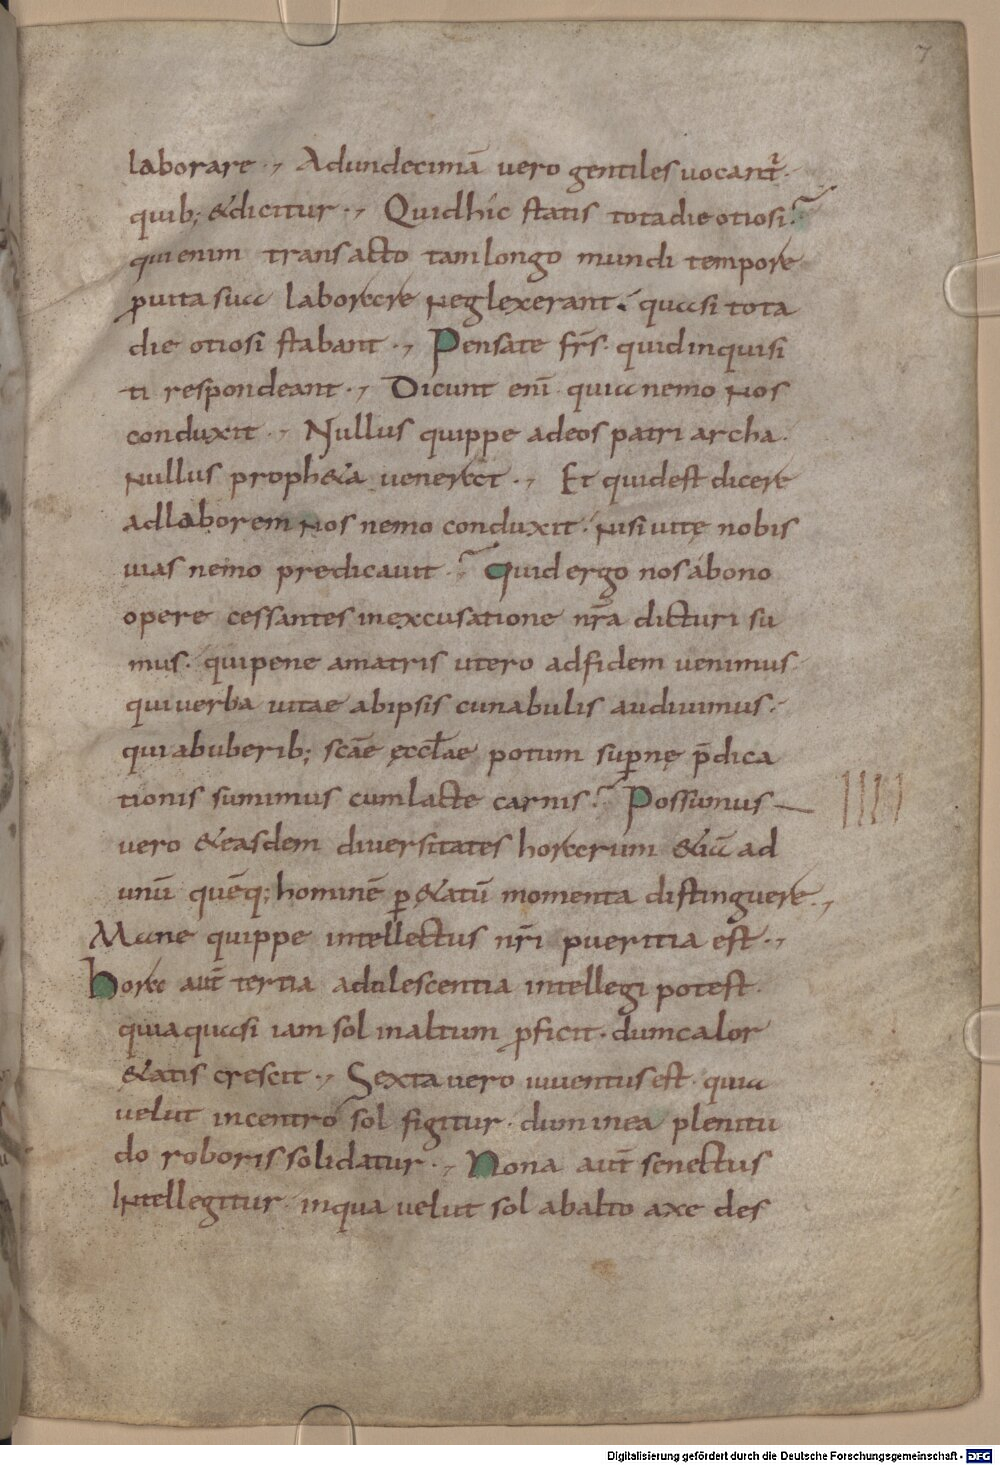 7
laborare ·, Adundecimā vero gentiles vocant᷑·
quib; &dicitur ·, Quid hic statis tota die otiosi?
qui enim transacto tam longo mundi tempore
ꝓ vita sua laborare neglexerant· quasi tota
die otiosi stabant ·, Pensate fr̄s· quid inquisi
ti respondeant ·, Dicunt enī quia nemo nos
conduxit ·, Nullus quippe ad eos patriarcha·
nullus proph&a venerat ·, Et quid est dicere
ad laborem nos nemo conduxit· nisi vitę nobis
vias nemo predicavit? Quid ergo nos á bono
opere cessantes in excusatione nr̄a dicturi su
mus· qui pene a matris utero ad fidem venimus
qui verba vitae ab ipsis cunabulis audivimus·
qui ab uberib; scāe ęccl̄ae potum suꝑnę p̄dica
tionis sumimus cum lacte carnis? Possumus
vero & easdem diversitates horarum &iā ad
unū quēq; hominē ꝑ &atū momenta distinguere·,
Mane quippe intellectus nr̄i pueritia est·,
Hora aut̄ tertia adulescentia intellegi potest·
quia quasi iam sol in altum ꝓficit· dum calor
&atis crescit·, Sexta vero iuventus est· quia
velut in centro sol figitur· dum in ea plenitu
do roboris solidatur·, Nona aut̄ senectus
Intellegitur· in qua velut sol ab alto axe des
IIII
Digitalisierung gefördert durch die Deutsche Forschungsgemeinschaft - DFG